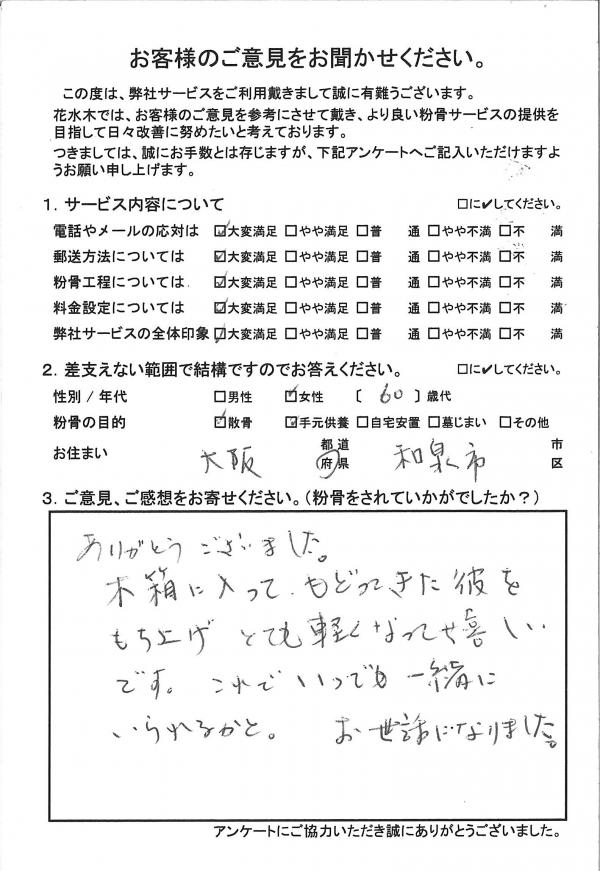 お客様のご意見をお聞かせください。
この度は、弊社サービスをご利用戴きまして誠に有難うございます。
花水木では、お客様のご意見を参考にさせて戴き、より良い粉骨サービスの提供を
目指して日々改善に努めたいと考えております。
つきましては、誠にお手数とは存じますが、下記アンケートへご記入いただけますよ
うお願い申し上げます。
1．サービス内容について □に✔してください。
電話やメールの応対は ☑大変満足 □やや満足 □普 通 □やや不満 □不 満
郵送方法については ☑大変満足 □やや満足 □普 通 □やや不満 □不 満
粉骨工程については ☑大変満足 □やや満足 □普 通 □やや不満 □不 満
料金設定については ☑大変満足 □やや満足 □普 通 □やや不満 □不 満
弊社サービスの全体印象 ☑大変満足 □やや満足 □普 通 □やや不満 □不 満
2．差支えない範囲で結構ですのでお答えください。 □に✔してください。
性別 / 年代 □男性 ☑女性 〔 60 〕歳代
粉骨の目的 ☑散骨 ☑手元供養 □自宅安置 □墓じまい □その他
お住まい 大阪 都道府県 和泉市 市区
3．ご意見、ご感想をお寄せください。（粉骨をされていかがでしたか？）
ありがとうございました。
木箱に入って、もどってきた彼を
もち上げ とても軽くなって 嬉しい
です。これでいつでも一緒に
いられるかと。 お世話になりました。
アンケートにご協力いただき誠にありがとうございました。